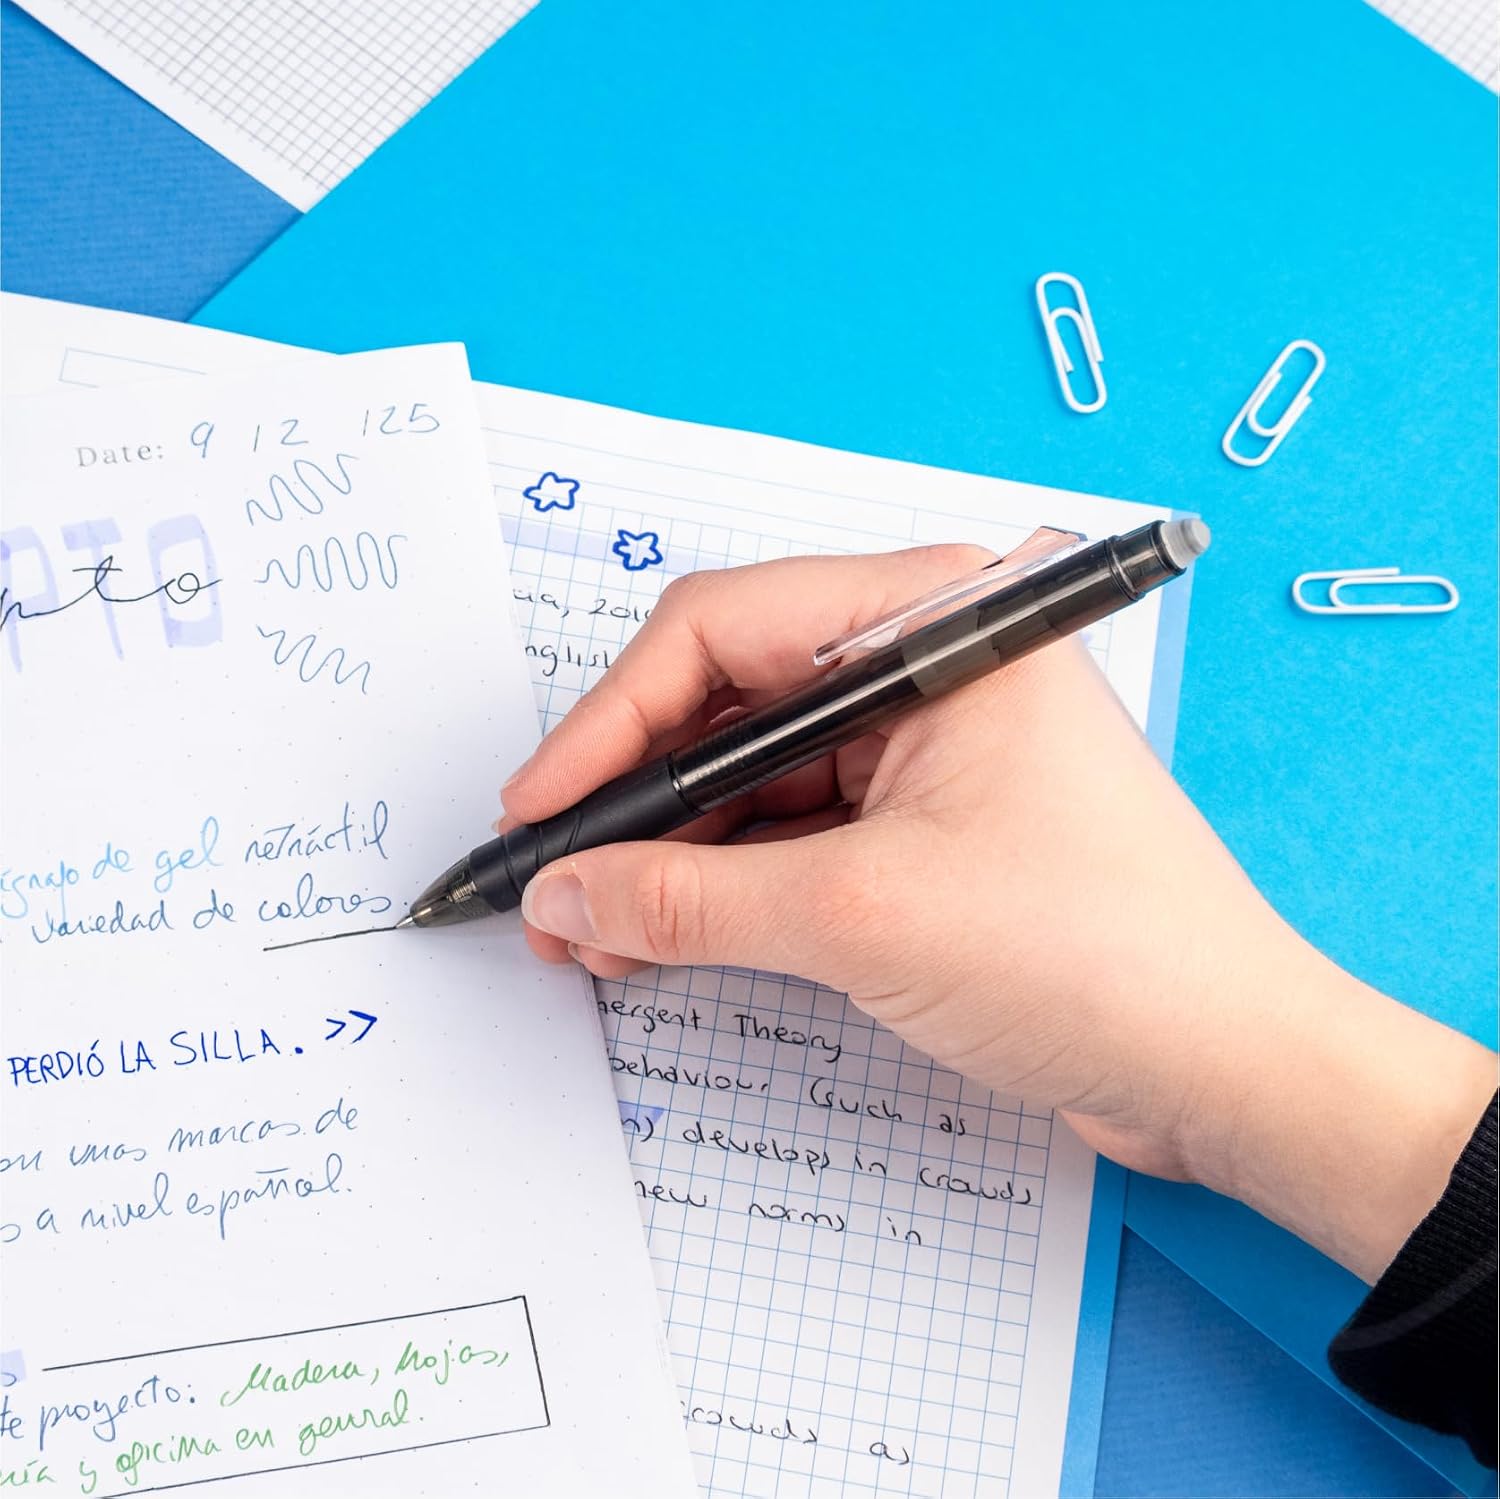 Date: 9 12 125
pto
de gel retráctil
variedad de colores.
PERDIÓ LA SILLA. >>
unas marcas de
a nivel español.
proyecto: Madera, hojas,
y oficina en genral.
2010
Theory
behaviour (such as
develops in crowds
new norms in
crowds as